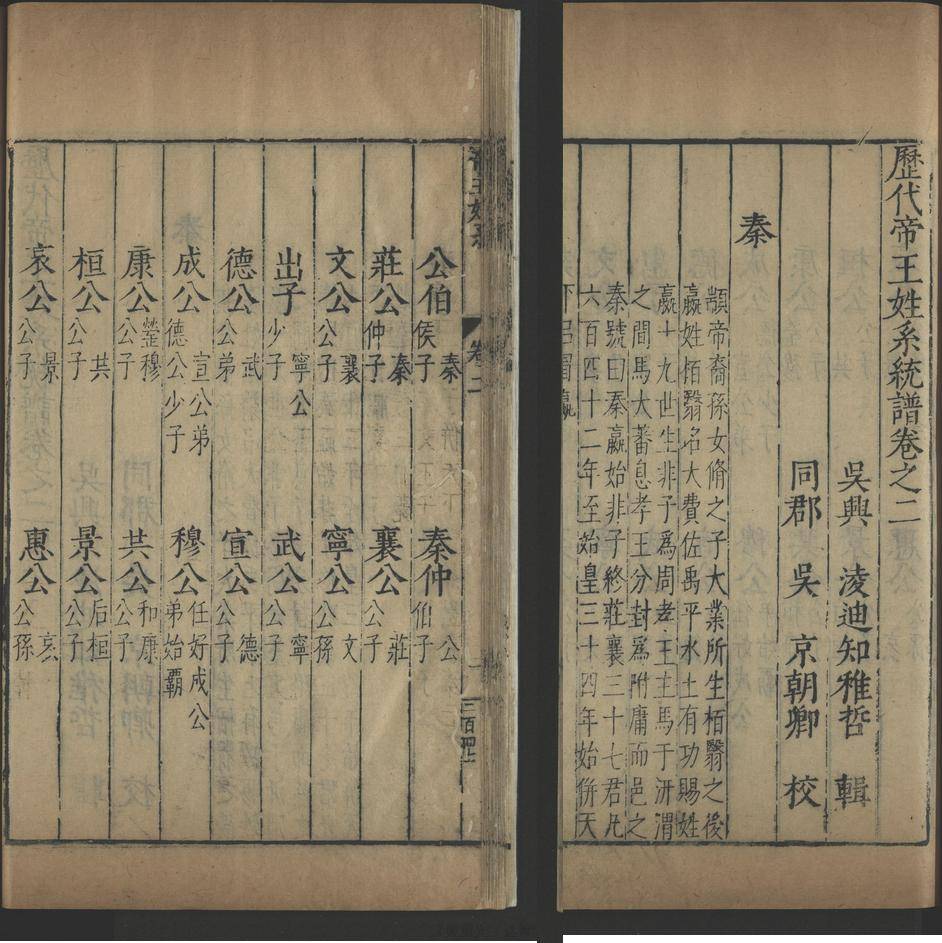 歷代帝王姓系統譜卷之二
吳興 凌迪知稚哲 輯
同郡 吳 京朝卿 校
秦
顓帝裔孫女脩之子大業所生栢翳之後
嬴姓栢翳名大費佐禹平水土有功賜姓
嬴十九世生非子爲周孝王主馬于汧渭
之間馬大蕃息孝王分封爲附庸而邑之
秦號曰秦嬴始非子終莊襄三十七君凡
六百四十二年至始皇三十四年始併天
下呂冒嬴
帝王姓系
卷二
一
三百四十
公伯 秦侯子
秦仲 公伯子
莊公 秦仲子
襄公 莊公子
文公 襄公子
寧公 文公孫
出子 寧公少子
武公 寧公子
德公 武公弟
宣公 德公子
成公 宣公弟德公少子
穆公 任好成公弟始霸
康公 罃穆公子
共公 和康公子
桓公 共公子
景公 后桓公子
哀公 景公子
惠公 哀公孫